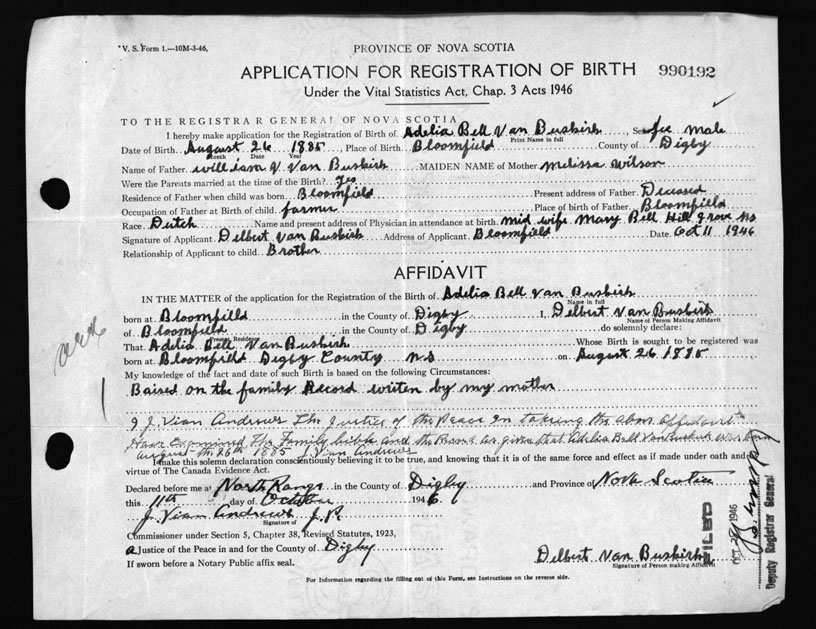 V. S. Form 1.—10M-3-46,
PROVINCE OF NOVA SCOTIA
APPLICATION FOR REGISTRATION OF BIRTH 990192
Under the Vital Statistics Act, Chap. 3 Acts 1946
TO THE REGISTRAR GENERAL OF NOVA SCOTIA
I hereby make application for the Registration of Birth of Adelia Bell Van Buskirk, Sex fee male
Print Name in full
Date of Birth August 26 1885, Place of Birth Bloomfield County of Digby
Month Date Year
Name of Father William V. Van Buskirk MAIDEN NAME of Mother Melissa Wilson
Were the Parents married at the time of the Birth? Yes
Residence of Father when child was born Bloomfield Present address of Father Deceased
Occupation of Father at Birth of child farmer Place of birth of Father Bloomfield
Race Dutch Name and present address of Physician in attendance at birth mid wife Mary Bell Hill grove NS
Signature of Applicant Delbert Van Buskirk Address of Applicant Bloomfield Date Oct 11 1946
Relationship of Applicant to child Brother
AFFIDAVIT
IN THE MATTER of the application for the Registration of the Birth of Adelia Bell Van Buskirk
Name in full
born at Bloomfield in the County of Digby I, Delbert Van Buskirk
Name of Person Making Affidavit
of Bloomfield in the County of Digby do solemnly declare:
Present Residence
That Adelia Bell Van Buskirk Whose Birth is sought to be registered was
born at Bloomfield Digby County N.S on August 26 1885
My knowledge of the fact and date of such Birth is based on the following Circumstances:
Baised on the family Record writen by my mother
I J. Vian Andrews The Justice of the Peace In taking the above affidavit
Have Examined The Family bible and the Record is given that Adelia Bell Van Buskirk was born
August the 26th 1885 J. Vian Andrews
I make this solemn declaration conscientiously believing it to be true, and knowing that it is of the same force and effect as if made under oath and by
virtue of The Canada Evidence Act.
Declared before me at North Range in the County of Digby and Province of Nova Scotia
this 11th day of October 1946
J. Vian Andrews J.P.
Signature of
Commissioner under Section 5, Chapter 38, Revised Statutes, 1923,
a Justice of the Peace in and for the County of Digby
If sworn before a Notary Public affix seal.
Delbert Van Buskirk
Signature of Person making Affidavit
For Information regarding the filling out of this Form, see Instructions on the reverse side.
FILED
1946
Deputy Registrar General